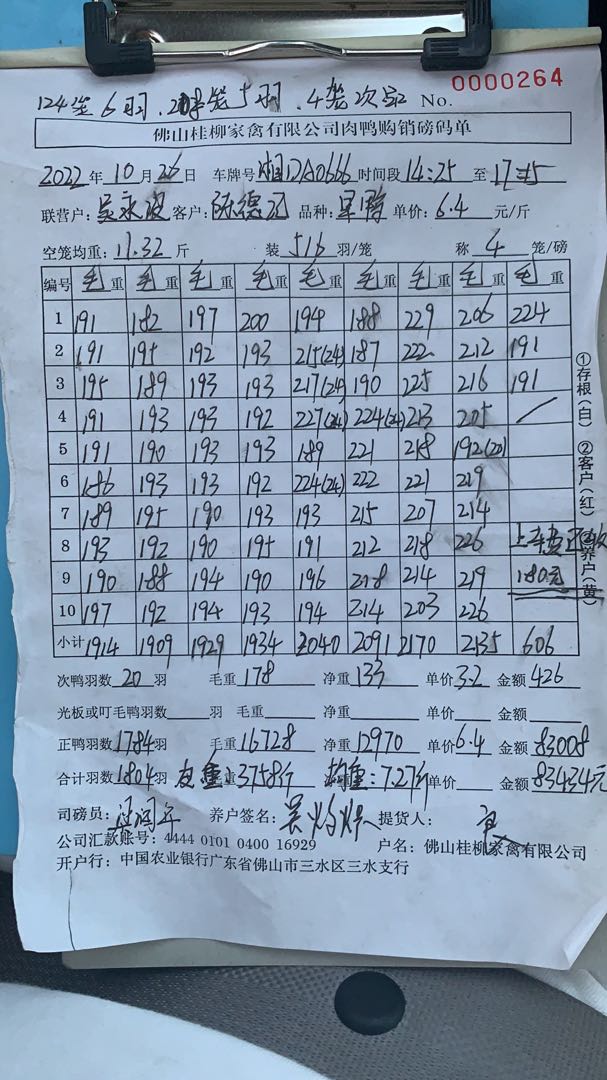 124笼6羽.208笼5羽.4笼次品 No. 0000264
佛山桂柳家禽有限公司肉鸭购销磅码单
2022年10月26日 车牌号DA0666时间段14:25至17:15
联营户: 客户: 品种: 单价:6.4元/斤
空笼均重:11.32斤 装516羽/笼 称4笼/磅
编号 毛重 毛重 毛重 毛重 毛重 毛重 毛重 毛重 毛重
1 191 182 197 200 194 188 229 206 224
2 191 195 192 193 215(24) 187 222 212 191
3 195 189 193 193 217(24) 190 225 216 191
4 191 193 193 192 227(24) 224(24) 213 205 /
5 191 190 193 193 189 221 218 192(20)
6 186 193 193 192 224(24) 222 221 219
7 189 195 190 193 193 215 207 214
8 193 192 190 195 191 212 218 226 上车费
9 190 188 194 190 196 218 214 219 180元
10 197 192 194 193 194 214 203 226
小计 1914 1909 1929 1934 2040 2091 2170 2135 606
次鸭羽数20羽 毛重178 净重133 单价3.2 金额426
光板或叮毛鸭羽数 羽 毛重 净重 单价 金额
正鸭羽数1784羽 毛重16728 净重12970 单价6.4 金额83008
合计羽数1804羽 皮重:3758斤 均重:7.27斤 单价 金额83434元
司磅员: 养户签名: 提货人:
公司汇款账号:4444 0101 0400 16929 户名:佛山桂柳家禽有限公司
开户行:中国农业银行广东省佛山市三水区三水支行
①存根(白) ②客户(红) ③养户(黄)